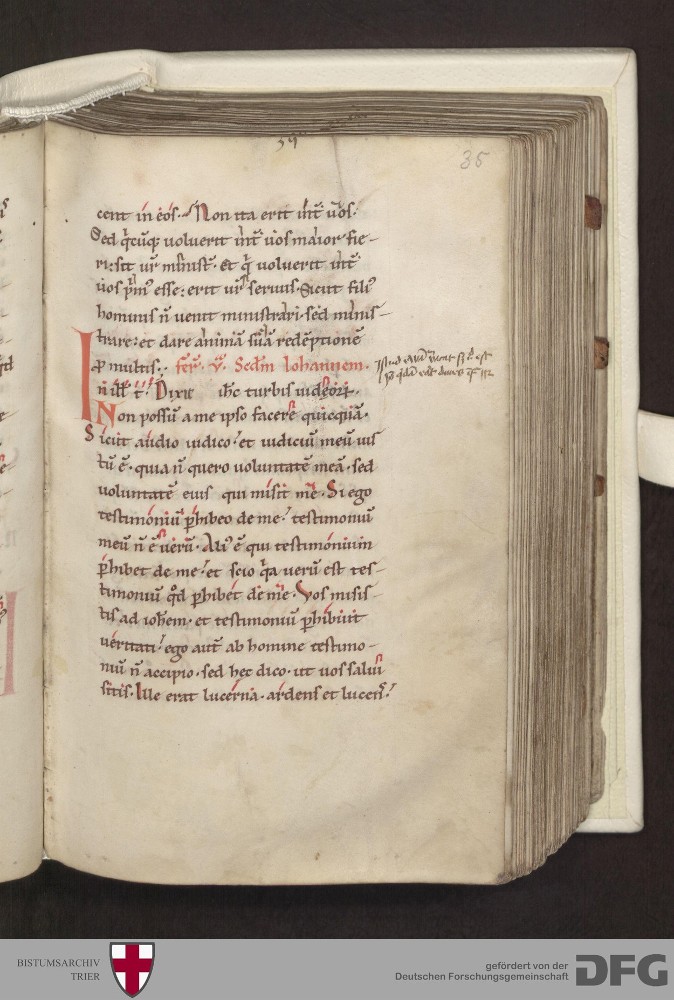 39
35
cent in eos. Non ita erit int̄ uos.
Sed q̄cūq; uoluerit int̄ uos maior fie-
ri: sit ur̄ minist̄. Et q̄ uoluerit int̄
uos p̄m᷒ esse: erit ur̄ seruus. Sicut fili᷒
hominis n̄ uenit ministrari. sed minis-
trare: et dare animā suā redēptionē
ꝓ multis. fer̄. v. Scd̄m Iohannem.
In ill̄ t̄. Dixit ihc̄ turbis iudeorꝝ.
Non possū a me ipso facere quicquā.
Sicut audio iudico. et iudiciū meū ius
tū ē. quia n̄ quero uoluntatē meā. sed
uoluntatē eius qui misit me. Si ego
testimoniū p̄hibeo de me. testimoniū
meū n̄ ē uerū. Ali᷒ ē qui testimonium
p̄hibet de me. et scio q̄a uerū est tes-
timoniū qd̄ p̄hibet de me. Vos misis-
tis ad ioh̄em. et testimoniū p̄hibuit
ueritati. ego aut̄ ab homine testimo-
niū n̄ accipio. sed hec dico. ut uos salui
sitis. Ille erat lucerna. ardens et lucens.
BISTUMSARCHIV
TRIER
gefördert von der
Deutschen Forschungsgemeinschaft
DFG